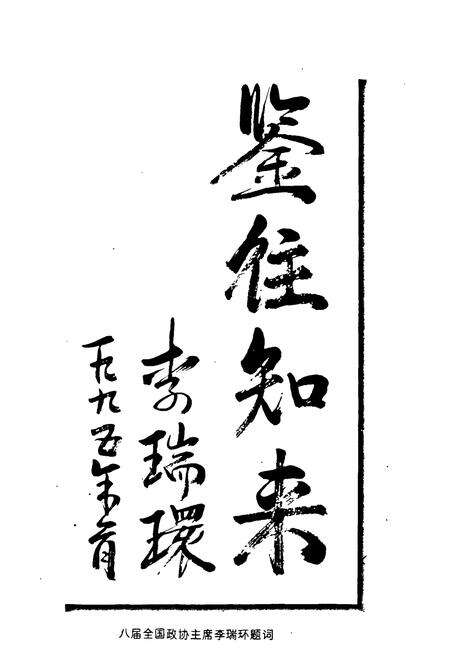 鉴往知来
李瑞環
一九九五年
八届全国政协主席李瑞环题词